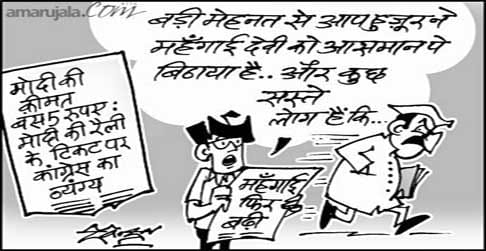 amarujala.com
बड़ी मेहनत से आप हुज़ूर ने
महँगाई देवी को आसमान पे
बिठाया है.. और कुछ
सस्ते
लोग हैं कि...
मोदी की
कीमत
बस 5 रुपए:
मोदी की रैली
के टिकट पर
कांग्रेस का
व्यंग्य
महँगाई
फिर
बढ़ी